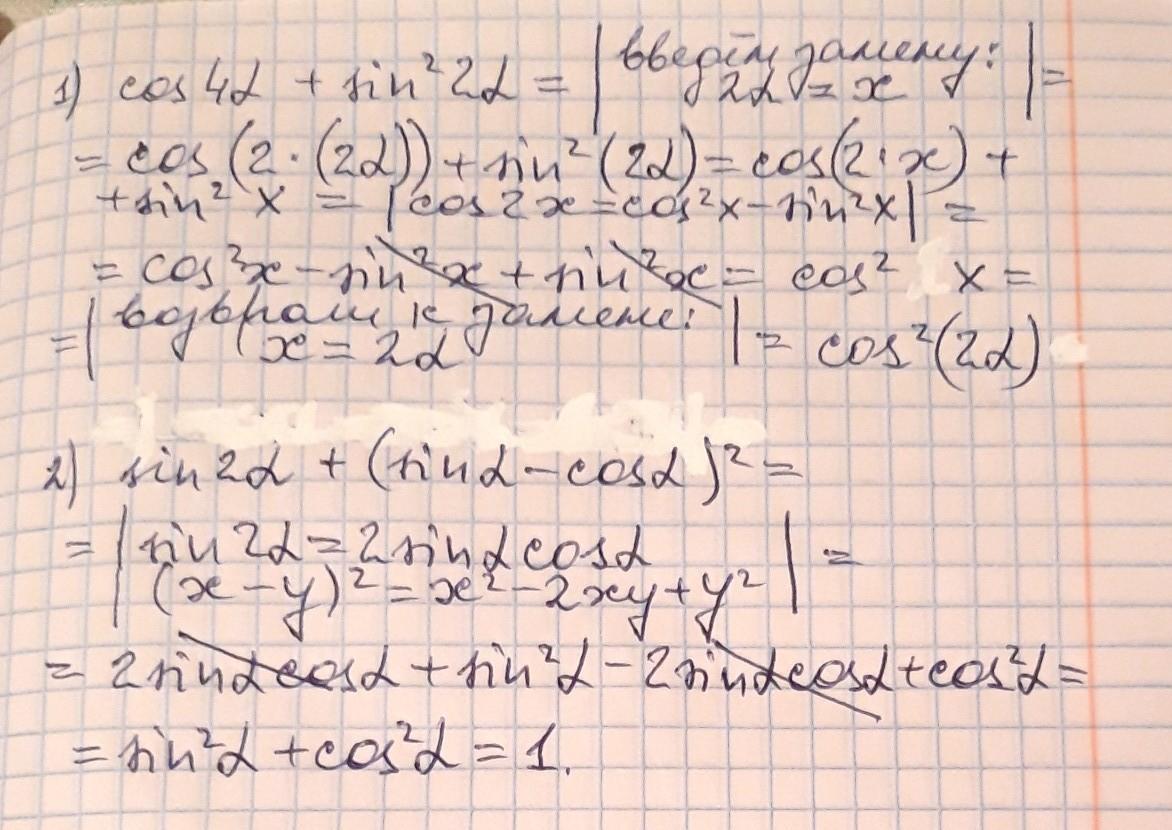 1) cos 4α + sin² 2α = | введём замену: 2α = x | =
= cos (2·(2α)) + sin² (2α) = cos(2·x) +
+ sin² x = | cos 2x = cos²x - sin²x | =
= cos²x - sin²x + sin²x = cos² x =
= | возврат к замене: x = 2α | = cos²(2α)
2) sin 2α + (sin α - cos α)² =
= | sin 2α = 2 sin α cos α
(x - y)² = x² - 2xy + y² | =
= 2 sin α cos α + sin²α - 2 sin α cos α + cos²α =
= sin²α + cos²α = 1.